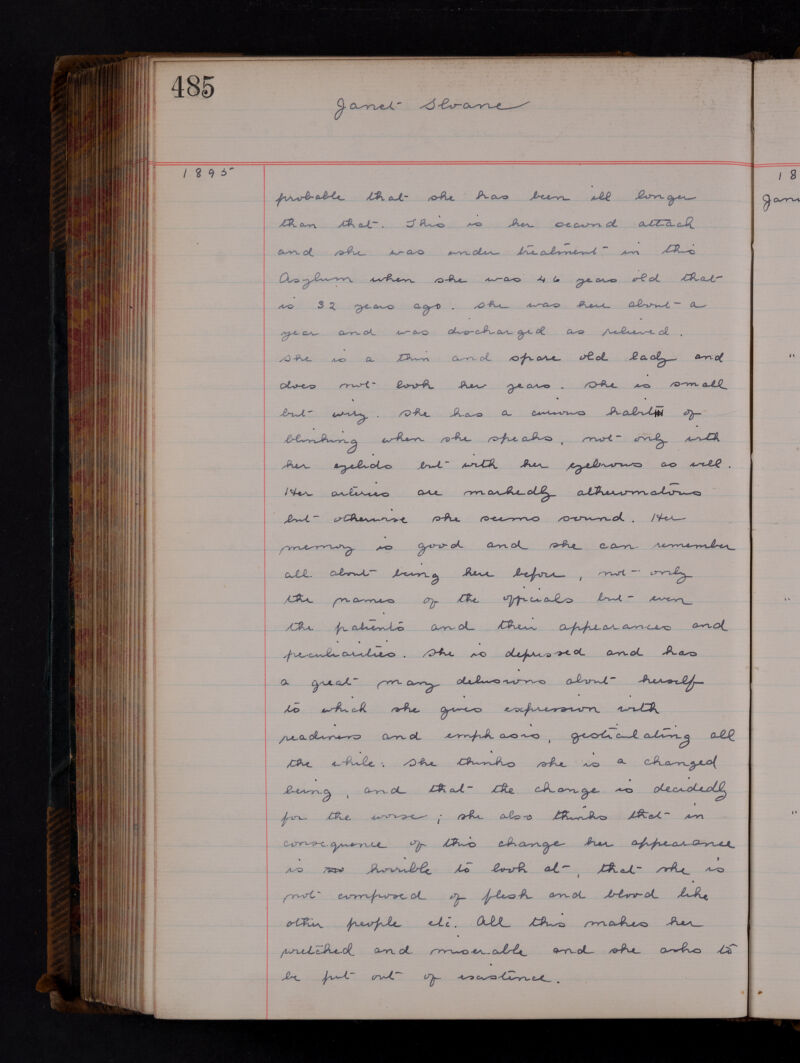 485
Janet Sloane
1895
probable that she has been ill longer
than that. This is her second attack
and she was under treatment in this
Asylum when she was 46 years old that
is 32 years ago. She was here about a
year and was discharged as relieved.
She is a thin and spare old lady and
does not look her years. She is small
but wiry. She has a curious habit of
blinking when she speaks, not only with
her eyelids but with her eyebrows as well.
Her arteries are markedly atheromatous
but otherwise she seems sound. Her
memory is good and she can remember
all about being here before, not only
the names of the officials but even
the patients and their appearances and
peculiarities. She is depressed and has
a great many delusions about herself
to which she gives expression with
readiness and emphasis, gesticulating all
the while. She thinks she is a changed
being, and that the change is decidedly
for the worse; she also thinks that in
consequence of this change her appearance
is horrible to look at, that she is
not composed of flesh and blood like
other people etc. All this makes her
wretched and miserable and she asks to
be put out of existence.
18
Jan
"
"
"